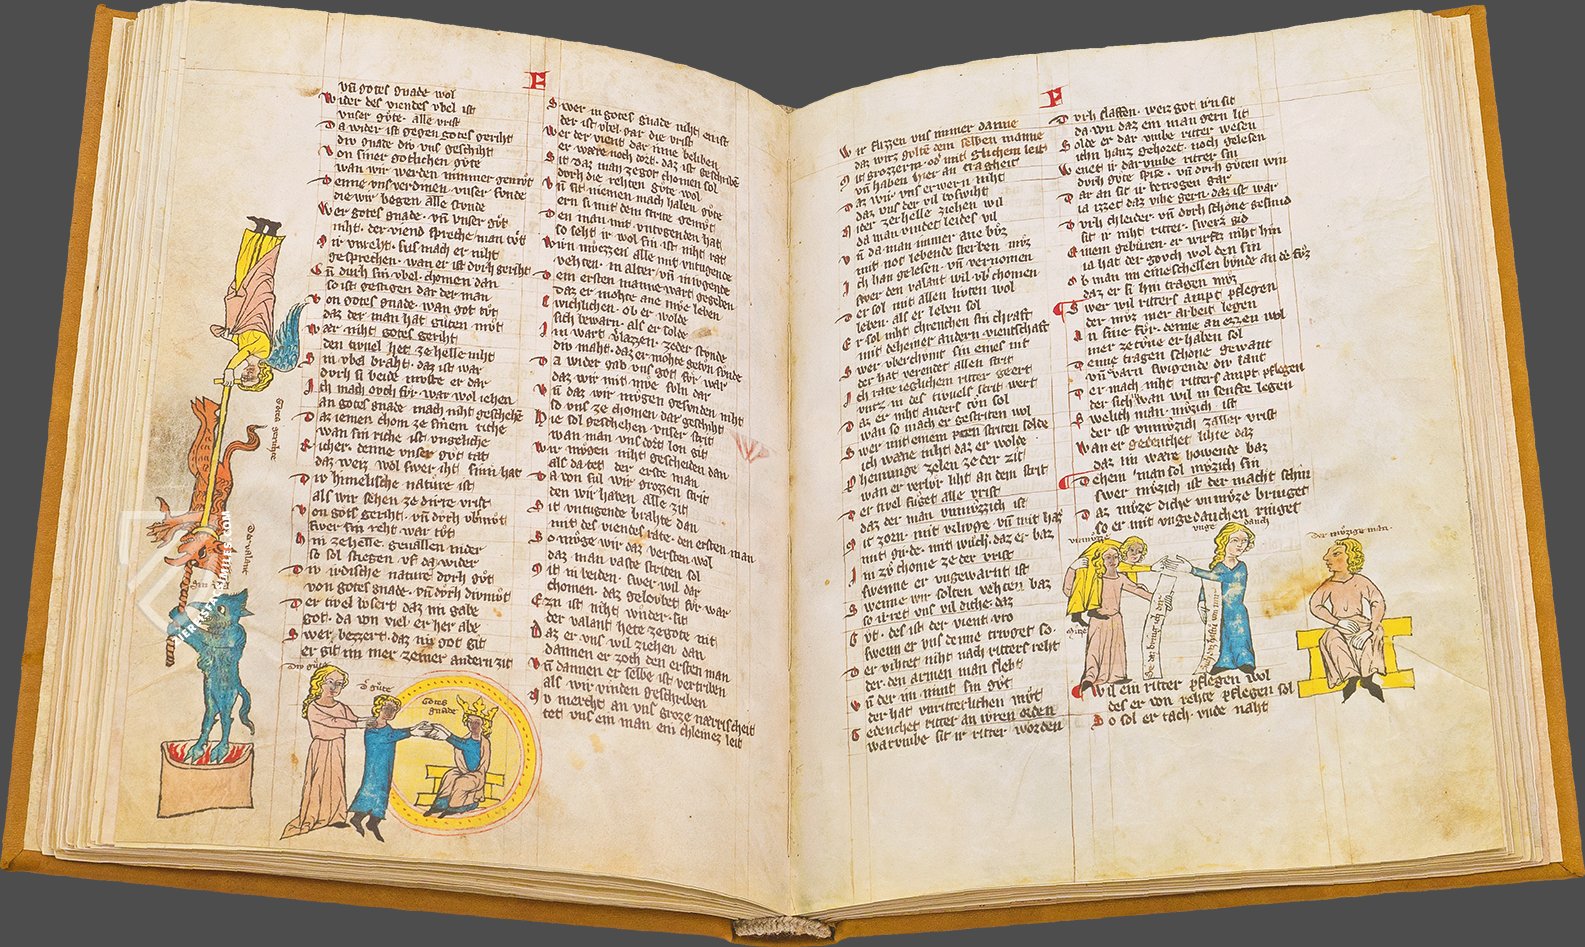 F
vñ gotes gnade wol
wider des viendes vbel ist
vnser gv̊te alle vrist
Da wider ist gegen gotes geriht
div gnade div vns geschiht
von siner gotlichen gv̊te
wan wir werden nimmer
Denne vns verdinen vnser svnde
die wir begen alle stvnde
wer gotes gnade vñ vnser gv̊t
niht der viend spreche man tv̊t
gesprechen wan er ist dvrh geriht
dvrch sin vbel chomen dan
so ist gestigen dar der man
von gotes gnade wan got tv̊t
daz der man hat gv̊ten mv̊t
wær niht gotes geriht
den tiuel het ze helle niht
sin vbel braht daz ist war
dvrh si beide mvste er dar
Ich mach ovch fvr war wol iehen
an gotes gnade mach niht geschehen
Daz iemen chom ze sinem riche
wan sin riche ist vngeliche
Richer denne vnser gv̊t tat
daz weiz wol swer iht sinn hat
Div himelische nature ist
als wir sehen ze dirre vrist
von gotes geriht vñ dvrh vbmv̊t
swer sin reht war tv̊t
Sin ze helle geuallen nider
so sol stigen vf da wider
Div irdische nature dvrh gv̊t
von gotes gnade vñ dvrh divmv̊t
Der tivel loset daz im gabe
got da von viel er her abe
Swer bezzert daz im got git
er git im mer zeiner andern zit
Gotes geriht
Der valant
div gv̊te
Gotes gnade
Swer in gotes gnade niht enist
der ist vbel gar die vrist
wer der vient dar inne beliben
er wære noch dort daz ist geschribē
Sit daz man ze got chomen sol
dvrh die rehten gv̊te wol
vñ sit niemen mach haben gv̊te
ern si mit dem strite gemv̊t
Den man mit vntvgenden hat
so seht ir wol sin ist niht rat
wirn mv̊zzen alle mit vntugende
vehten in alter vñ in ivgende
Dem ersten manne wart gegeben
daz er mohte ane mv̊e leben
wichlichen ob er wolde
sich bewarn als er solde
Im wart verlazzen zeder stvnde
div maht daz er mohte getvn svnde
Da wider gab vns got fvr war
daz wir mit mve svln dar
vñ daz wir mvgen gesvnden niht
so vns ze chomen dar geschiht
Hie sol geschehen vnser strit
wan man vns dort lon git
wir mvgen niht gescheiden dan
als da tet der erste man
Da von svl wir grozzen strit
den wir haben alle zit
Sit vntugende brahte dan
mit des viendes rate den ersten man
So mvge wir daz versten wol
daz man vaste striten sol
Sit in beiden swer wil dar
chomen daz gelovbet fvr war
Ezn ist niht wunder sit
der valant hete zegote nit
Daz er vns wil ziehen dan
dannen er zoch den ersten man
vñ dannen er selbe ist vertriben
als wir vinden geschriben
Nv merchet an vns groze nærrischeit
tet vns ein man ein chleinez leit
F
wir flizzen vns immer danne
daz wirz gvlten dem selben manne
vñ haben hier an tragheit
Daz wir vns erwern niht
daz vns der vil boswiht
Nider zer helle ziehen wil
da man vindet leides vil
vñ da man immer ane bv̊z
mit not lebende sterben mv̊z
Ich han gelesen vñ vernomen
swer den valant wil vberchomen
Der sol mit allen livten wol
leben als er leben sol
Er sol niht chrenchen sin chraft
mit deheiner andern vientschaft
Swer vberchvmt sin eines nit
der hat verendet allen strit
Ich rate ieglichem ritter geert
vntz in des tiuels strit wert
Daz er niht anders tvn sol
wan so mach er gestriten wol
Swer mit einem striten solde
ich wæne niht daz er wolde
Pfenninge zelen ze der zit
wan er verlvr liht an dem strit
Der tivel fuget alle vrist
daz der man vnmvzzich ist
mit zorn mit vrlivge vñ mit haz
mit gv̊de mit wch daz er baz
In zv̊ chome ze der vrist
swenne er vngewarnt ist
Swenne wir solten vehen baz
so irret vns vil diche daz
Gvt des ist der vient vro
swenn er vns denne trivget so
Der rihtet niht nach ritters reht
der den armen man sleht
vñ der im nimt sin gv̊t
der hat vnritterlichen mv̊t
Gedenchet ritter an iwren orden
warvmbe sit ir ritter worden
Dvrh slaffen weiz got irn sit
da von daz ein man gern lit
Solde er dar vmbe ritter wesen
ichn hanz gehoret noch gelesen
wenet ir dar vmbe ritter sin
dvrh gv̊te spise vñ dvrh gv̊ten win
Dar an sit ir betrogen gar
ia izzet daz vihe gern daz ist war
Dvrh chleider vñ dvrh schone gesmid
sit ir niht ritter swerz gid
Einem gebvren er wirfts niht hin
ia hat der govch wol den sin
Ob man im eine schellen bvnde an de fv̊z
daz er si hin tragen mv̊z
Swer wil ritters ampt pflegen
der mv̊z mer arbeit legen
An sine fvr denne an ezzen wol
mer ze tvne er haben sol
Denne tragen schone gewant
vñ varn swigende div lant
Der mach niht ritters ampt pflegen
der sich wan wil in senfte legen
Swelich man mv̊zich ist
der ist vnmv̊zich zaller vrist
wan er gedenchet lihte daz
daz im wære howende baz
Dehein man sol mvzich sin
swer mv̊zich ist der macht schin
Daz mv̊ze diche vnmv̊ze bringet
so er mit vngedanchen ringet
vnmv̊ze
vnge danch
der mv̊zige man
Wil ein ritter pflegen wol
des er von rehte pflegen sol
So sol er tach vnde naht